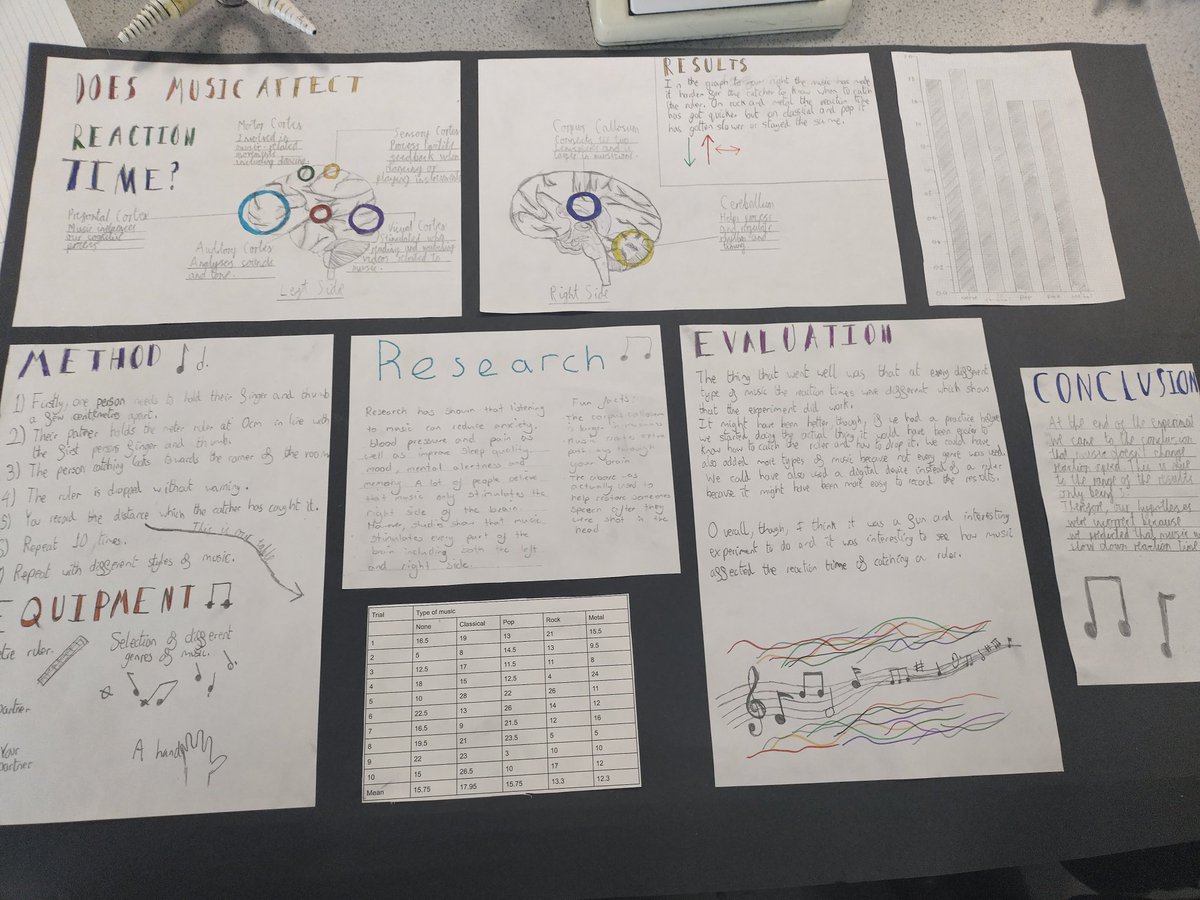 DOES MUSIC AFFECT
REACTION
TIME?
Motor Cortex
Involved in
music related
movements
including dancing.
Sensory Cortex
feedback when
dancing or
playing instruments
Prefrontal Cortex
Music influences
our cognitive
process
Auditory Cortex
Analyses sounds
and tone.
Visual Cortex
Stimulated when
reading and watching
videos related to
music.
Left Side
Corpus Callosum
Connects the two
hemispheres and is
larger in musicians.
Cerebellum
Helps process
and regulate
rhythm and
timing
Right Side
RESULTS
In the graph to your right the music has made
it harder for the catcher to know when to catch
the ruler. On rock and metal the reaction time
has got quicker but on classical and pop it
has gotten slower or stayed the same.
METHOD
1) Firstly, one person needs to hold their finger and thumb
a few centimetres apart.
2) Their partner holds the meter ruler at 0cm in line with
the first persons finger and thumb.
3) The person catching looks towards the corner of the room
4) The ruler is dropped without warning.
5) You record the distance which the catcher has caught it.
Repeat 10 times.
Repeat with different styles of music.
This is our table
EQUIPMENT
ruler.
Selection of different
genres of music.
partner
A hand
Your
partner
Research
Research has shown that listening
to music can reduce anxiety,
blood pressure and pain as
well as improve sleep quality,
mood, mental alertness and
memory. A lot of people believe
that music only stimulates the
right side of the brain.
However, studies show that music
stimulates every part of the
brain including both the left
and right side.
Fun facts!
The corpus callosum
is larger in musicians
your brain
actually used to
help restore someones
speech after they
were shot in the
head
Trial Type of music
None Classical Pop Rock Metal
1 16.5 19 13 21 15.5
2 5 8 14.5 13 9.5
3 12.5 17 11.5 11 8
4 18 15 12.5 4 24
5 10 28 22 26 11
6 22.5 13 26 14 12
7 16.5 9 21.5 12 16
8 19.5 21 23.5 5 5
9 22 23 3 10 10
10 15 26.5 10 17 12
Mean 15.75 17.95 15.75 13.3 12.3
EVALUATION
The thing that went well was that at every different
type of music the reaction times were different which show
that the experiment did work.
It might have been better though, if we had a practice before
we started doing the actual thing it would have been easier to
know how to catch the ruler and how to drop it. We could have
also added more types of music because not every genre was used.
We could have also used a digital device instead of a ruler
because it might have been more easy to record the results.
Overall, though, I think it was a fun and interesting
experiment to do and it was interesting to see how music
affected the reaction time of catching a ruler.
CONCLUSION
At the end of the experiment
we came to the conclusion
that music doesn't change
reaction speed. This is due
to the range of the results
only being
Therefore, our hypothesis
were incorrect because
we predicted that music
slow down reaction time